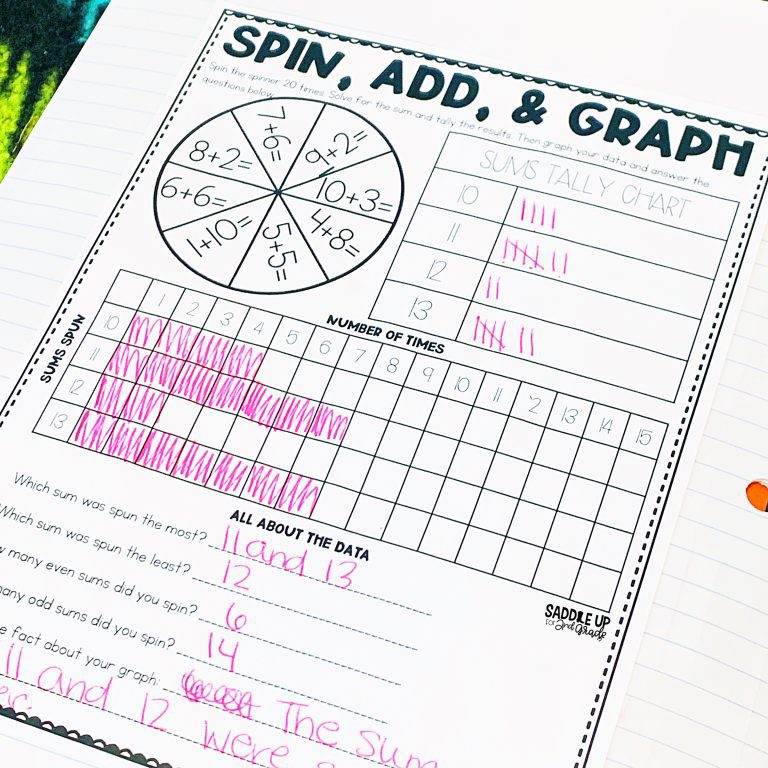 SPIN, ADD, & GRAPH
Spin the spinner 20 times. Solve for the sum and tally the results. Then graph your data and answer the
questions below.
7+6=
9+2=
8+2=
10+3=
6+6=
4+8=
1+10=
5+5=
SUMS TALLY CHART
10
11
12
13
NUMBER OF TIMES
SUMS SPUN
1 2 3 4 5 6 7 8 9 10 11 12 13 14 15
10
11
12
13
ALL ABOUT THE DATA
Which sum was spun the most? 11 and 13
Which sum was spun the least? 12
many even sums did you spin? 6
many odd sums did you spin? 14
fact about your graph: The sum
11 and 12 were
SADDLE UP
for 2nd Grade